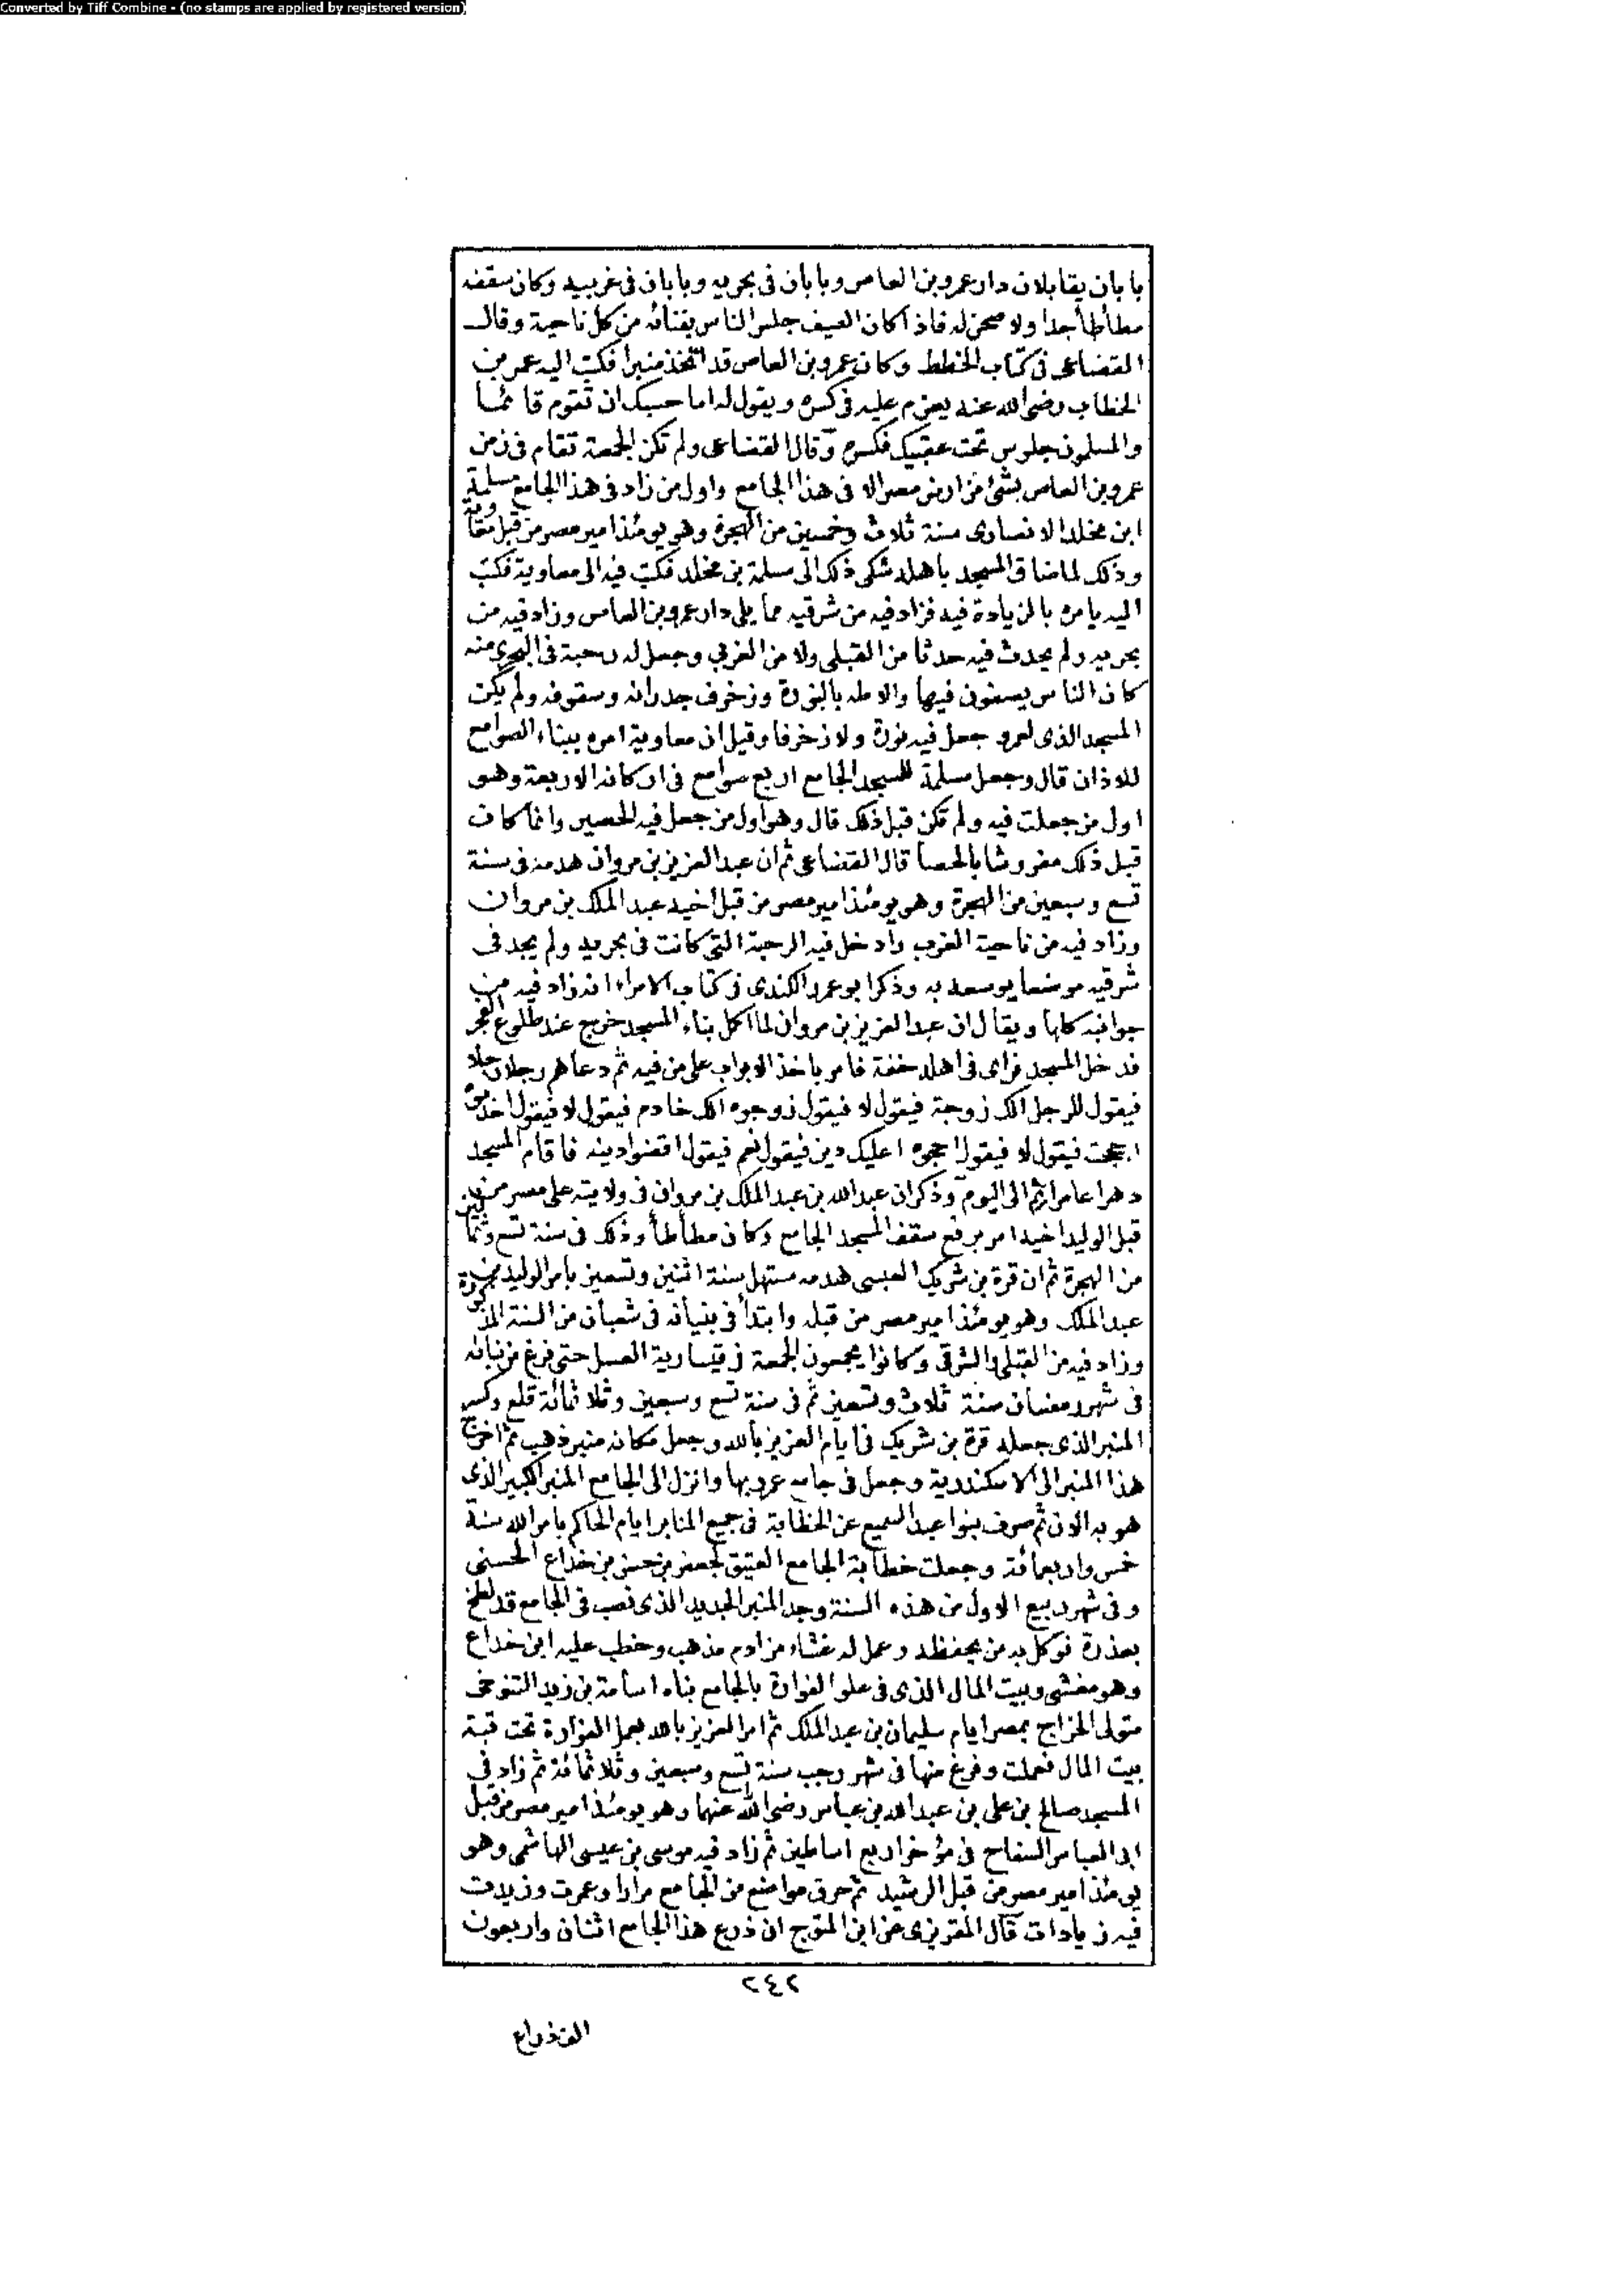 Converted by Tiff Combine - (no stamps are applied by registered version)
بابان يقابلان دار عمرو بن العاص وبابان فى بحريه وبابان فى غربيه وكان سقفه
مطأطأ جدا ولا صحن له فاذا كان الصيف جلس الناس بفنائه من كل ناحية وقال
القضاعى فى كتاب الخطط وكان عمرو بن العاص قد اتخذ منبرا فكتب اليه عمر بن
الخطاب رضى الله عنه يعزم عليه فى كسره ويقول له اما حسبك ان تقوم قائما
والمسلمون جلوس تحت عقبيك فكسره وقال القضاعى ولم تكن الجمعة تقام فى زمن
عمرو بن العاص بشئ من ارض مصر الا فى هذا الجامع واول من زاد فى هذا الجامع مسلمة
ابن مخلد الانصارى سنة ثلاث وخمسين من الهجرة وهو يومئذ امير مصر من قبل معاوية
وذلك لما ضاق المسجد باهله شكى ذلك الى مسلمة بن مخلد فكتب فيه الى معاوية فكتب
اليه يامره بالزيادة فيه فزاد فيه من شرقيه مما يلى دار عمرو بن العاص وزاد فيه من
بحريه ولم يحدث فيه حدثا من القبلى ولا من الغربي وجعل له رحبة فى البحرى منه
كان الناس يصيفون فيها ولاطه بالنورة وزخرف جدرانه وسقوفه ولم يكن
المسجد الذى لعمرو جعل فيه نورة ولا زخرفا وقيل ان معاوية امره ببناء الصوامع
للاذان قال وجعل مسلمة للمسجد الجامع اربع صوامع فى اركانه الاربعة وهو
اول من جعلت فيه ولم تكن قبل ذلك قال وهو اول من جعل فيه الحصير وانما كان
قبل ذلك مفروشا بالحصا قال القضاعى ثم ان عبد العزيز بن مروان هدمه فى سنة
تسع وسبعين من الهجرة وهو يومئذ امير مصر من قبل اخيه عبد الملك بن مروان
وزاد فيه من ناحية الغرب وادخل فيه الرحبة التى كانت فى بحريه ولم يجد فى
شرقيه موضعا يوسعه به وذكر ابو عمر الكندى فى كتاب الامراء انه زاد فيه من
جوانبه كلها ويقال ان عبد العزيز بن مروان لما اكمل بناء المسجد خرج عند طلوع الفجر
فدخل المسجد فراى فى اهله خفة فامر باخذ الابواب على من فيه ثم دعاهم رجلا رجلا
فيقول للرجل الك زوجة فيقول لا فيقول زوجوه الك خادم فيقول لا فيقول اخدموه
احججت فيقول لا فيقول احجوه اعليك دين فيقول نعم فيقول اقضوا دينه فاقام المسجد
دهرا عامرا ثم الى اليوم وذكر ان عبد الله بن عبد الملك بن مروان فى ولايته على مصر من
قبل الوليد اخيه امر برفع سقف المسجد الجامع وكان مطأطأ وذلك فى سنة تسع وثمانين
من الهجرة ثم ان قرة بن شريك العبسى هدمه مستهل سنة اثنين وتسعين بامر الوليد بن
عبد الملك وهو يومئذ امير مصر من قبله وابتدأ فى بنيانه فى شعبان من السنة المذكورة
وزاد فيه من القبلى والشرقى وكانوا يجمعون الجمعة فى قيسارية العسل حتى فرغ من بنيانه
فى شهر رمضان سنة ثلاث وتسعين ثم فى سنة تسع وسبعين وثلاثمائة قلع وكسر
المنبر الذى جعله قرة بن شريك فى ايام العزيز بالله وجعل مكانه منبر ذهب ثم اخرج
هذا المنبر الى الاسكندرية وجعل فى جامع عمرو بها وانزل الى الجامع المنبر الكبير الذى
هو به الان ثم صرف بنوا عبد السميع عن الخطابة فى جميع المنابر ايام الحاكم بامر الله سنة
خمس واربعمائة وجعلت خطابة الجامع العتيق لجعفر بن حسن بن خداع الحسنى
وفى شهر ربيع الاول من هذه السنة وجد المنبر الجديد الذى نصب فى الجامع قد لطخ
بعذرة فوكل به من يحفظه وعمل له غشاء من ادم مذهب وخطب عليه ابن خداع
وهو مغشى وبيت المال الذى فى علو الفوارة بالجامع بناه اسامة بن زيد التنوخى
متولى الخراج بمصر ايام سليمان بن عبد الملك ثم امر العزيز بالله بعمل الفوارة تحت قبة
بيت المال فعملت وفرغ منها فى شهر رجب سنة تسع وسبعين وثلاثمائة ثم زاد فى
المسجد صالح بن على بن عبد الله بن عباس رضى الله عنهما وهو يومئذ امير مصر من قبل
ابى العباس السفاح فى مؤخره اربع اساطين ثم زاد فيه موسى بن عيسى الهاشمى وهو
يومئذ امير مصر من قبل الرشيد ثم حرق مواضع من الجامع مرارا وعمرت وزيدت
فيه زيادات قال المقريزى عن ابن المتوج ان ذرع هذا الجامع اثنان واربعون
٢٤٢
الف ذراع